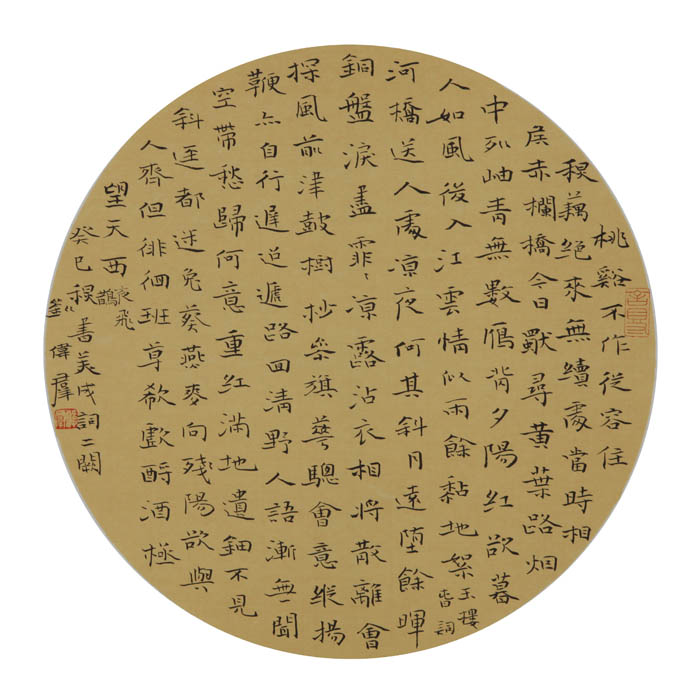 桃谿不作從容住
秋藕絕來無續處當時相
矦赤欄橋今日獨尋黃葉路烟
中列岫青無數鴈背夕陽紅欲暮
人如風後入江雲情似雨餘黏地絮 玉樓春詞
河橋送人處涼夜何其斜月遠墮餘暉
銅盤淚盡霏〻涼露沾衣相將散離會
探風前津鼓樹杪參旗華驄會意縱揚
鞭亦自行遲迢遞路回清野人語漸無聞
空帶愁歸何意重紅滿地遺鈿不見
斜逕都迷兔葵燕麥向殘陽欲與
人齊但徘徊班草欷歔酹酒極
望天西 夜飛鵲
癸巳秋書美成詞二闋
偉群